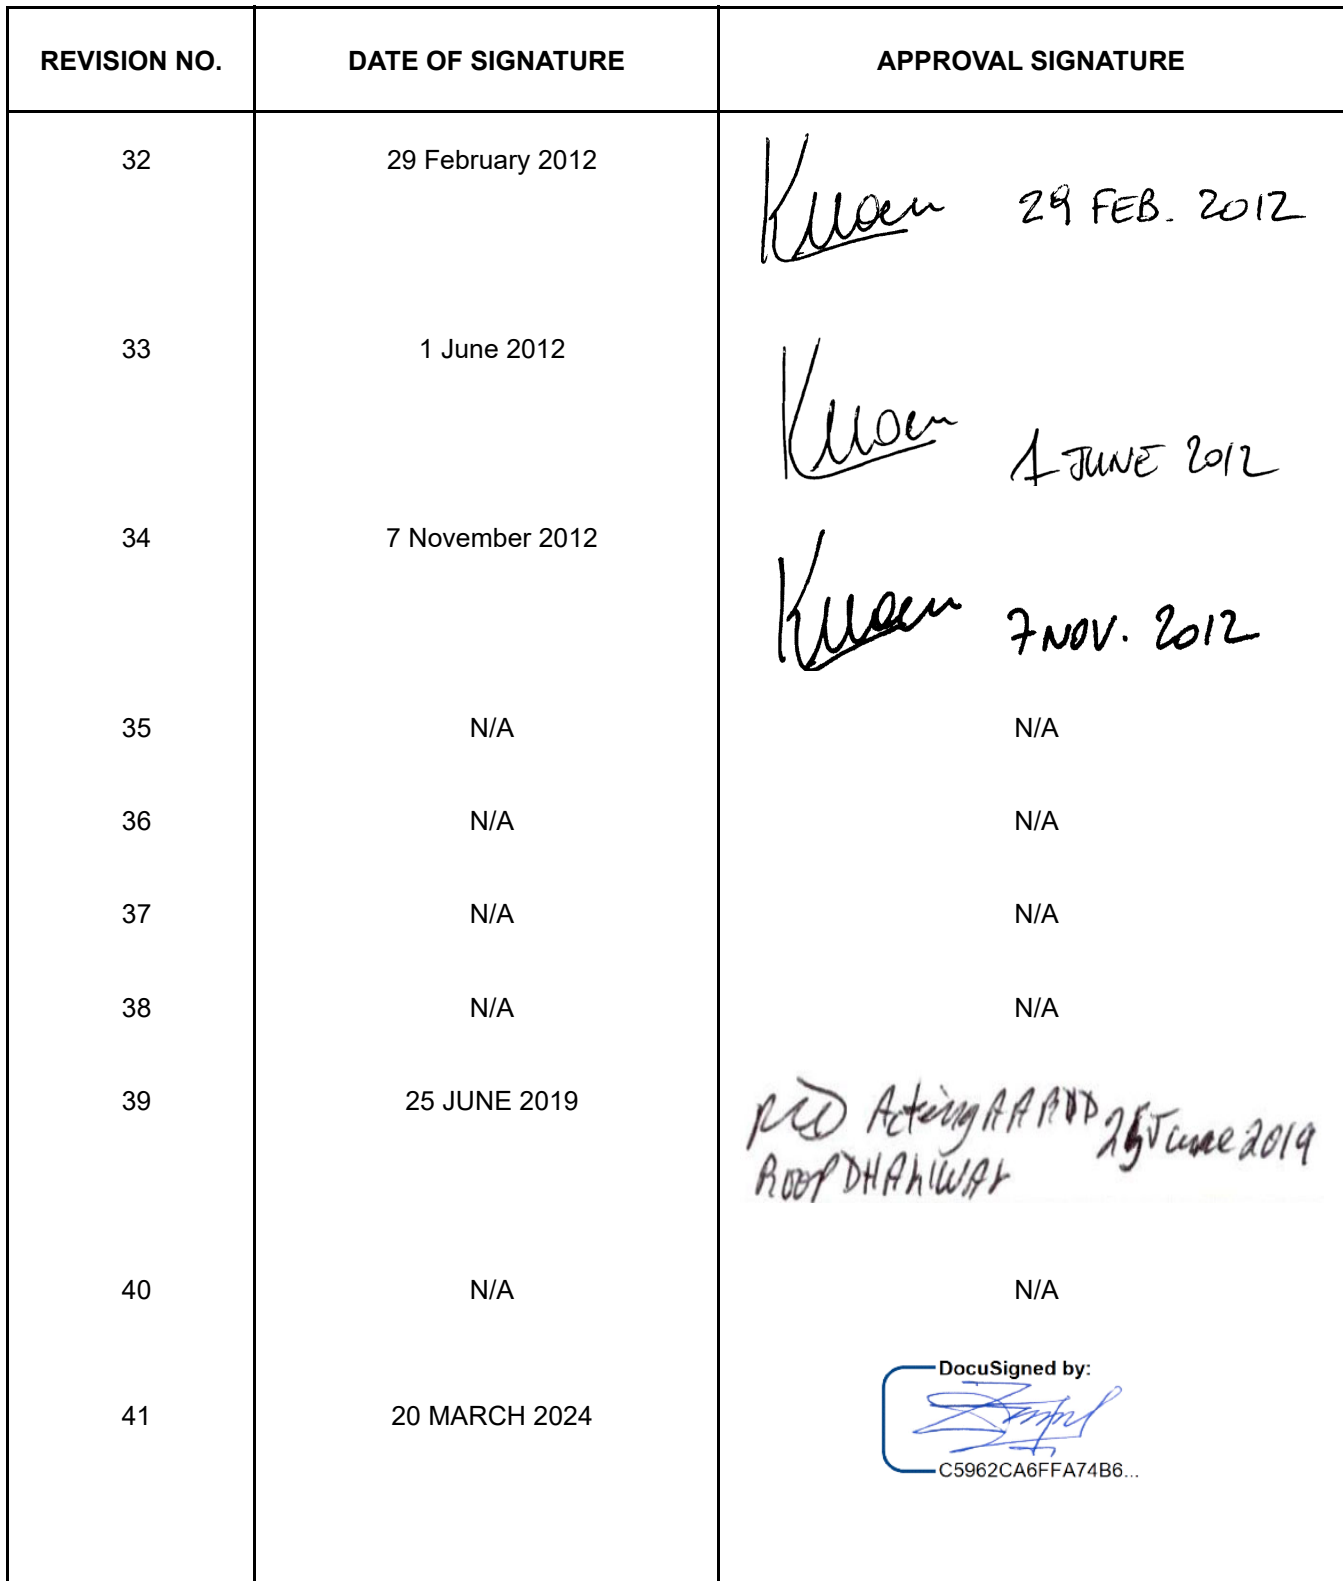 REVISION NO. DATE OF SIGNATURE APPROVAL SIGNATURE
32 29 February 2012
29 FEB. 2012
33 1 June 2012
1 JUNE 2012
34 7 November 2012
7 NOV. 2012
35 N/A N/A
36 N/A N/A
37 N/A N/A
38 N/A N/A
39 25 JUNE 2019
Acting 25 June 2019
ROOP DHALIWAL
40 N/A N/A
DocuSigned by:
41 20 MARCH 2024
C5962CA6FFA74B6...